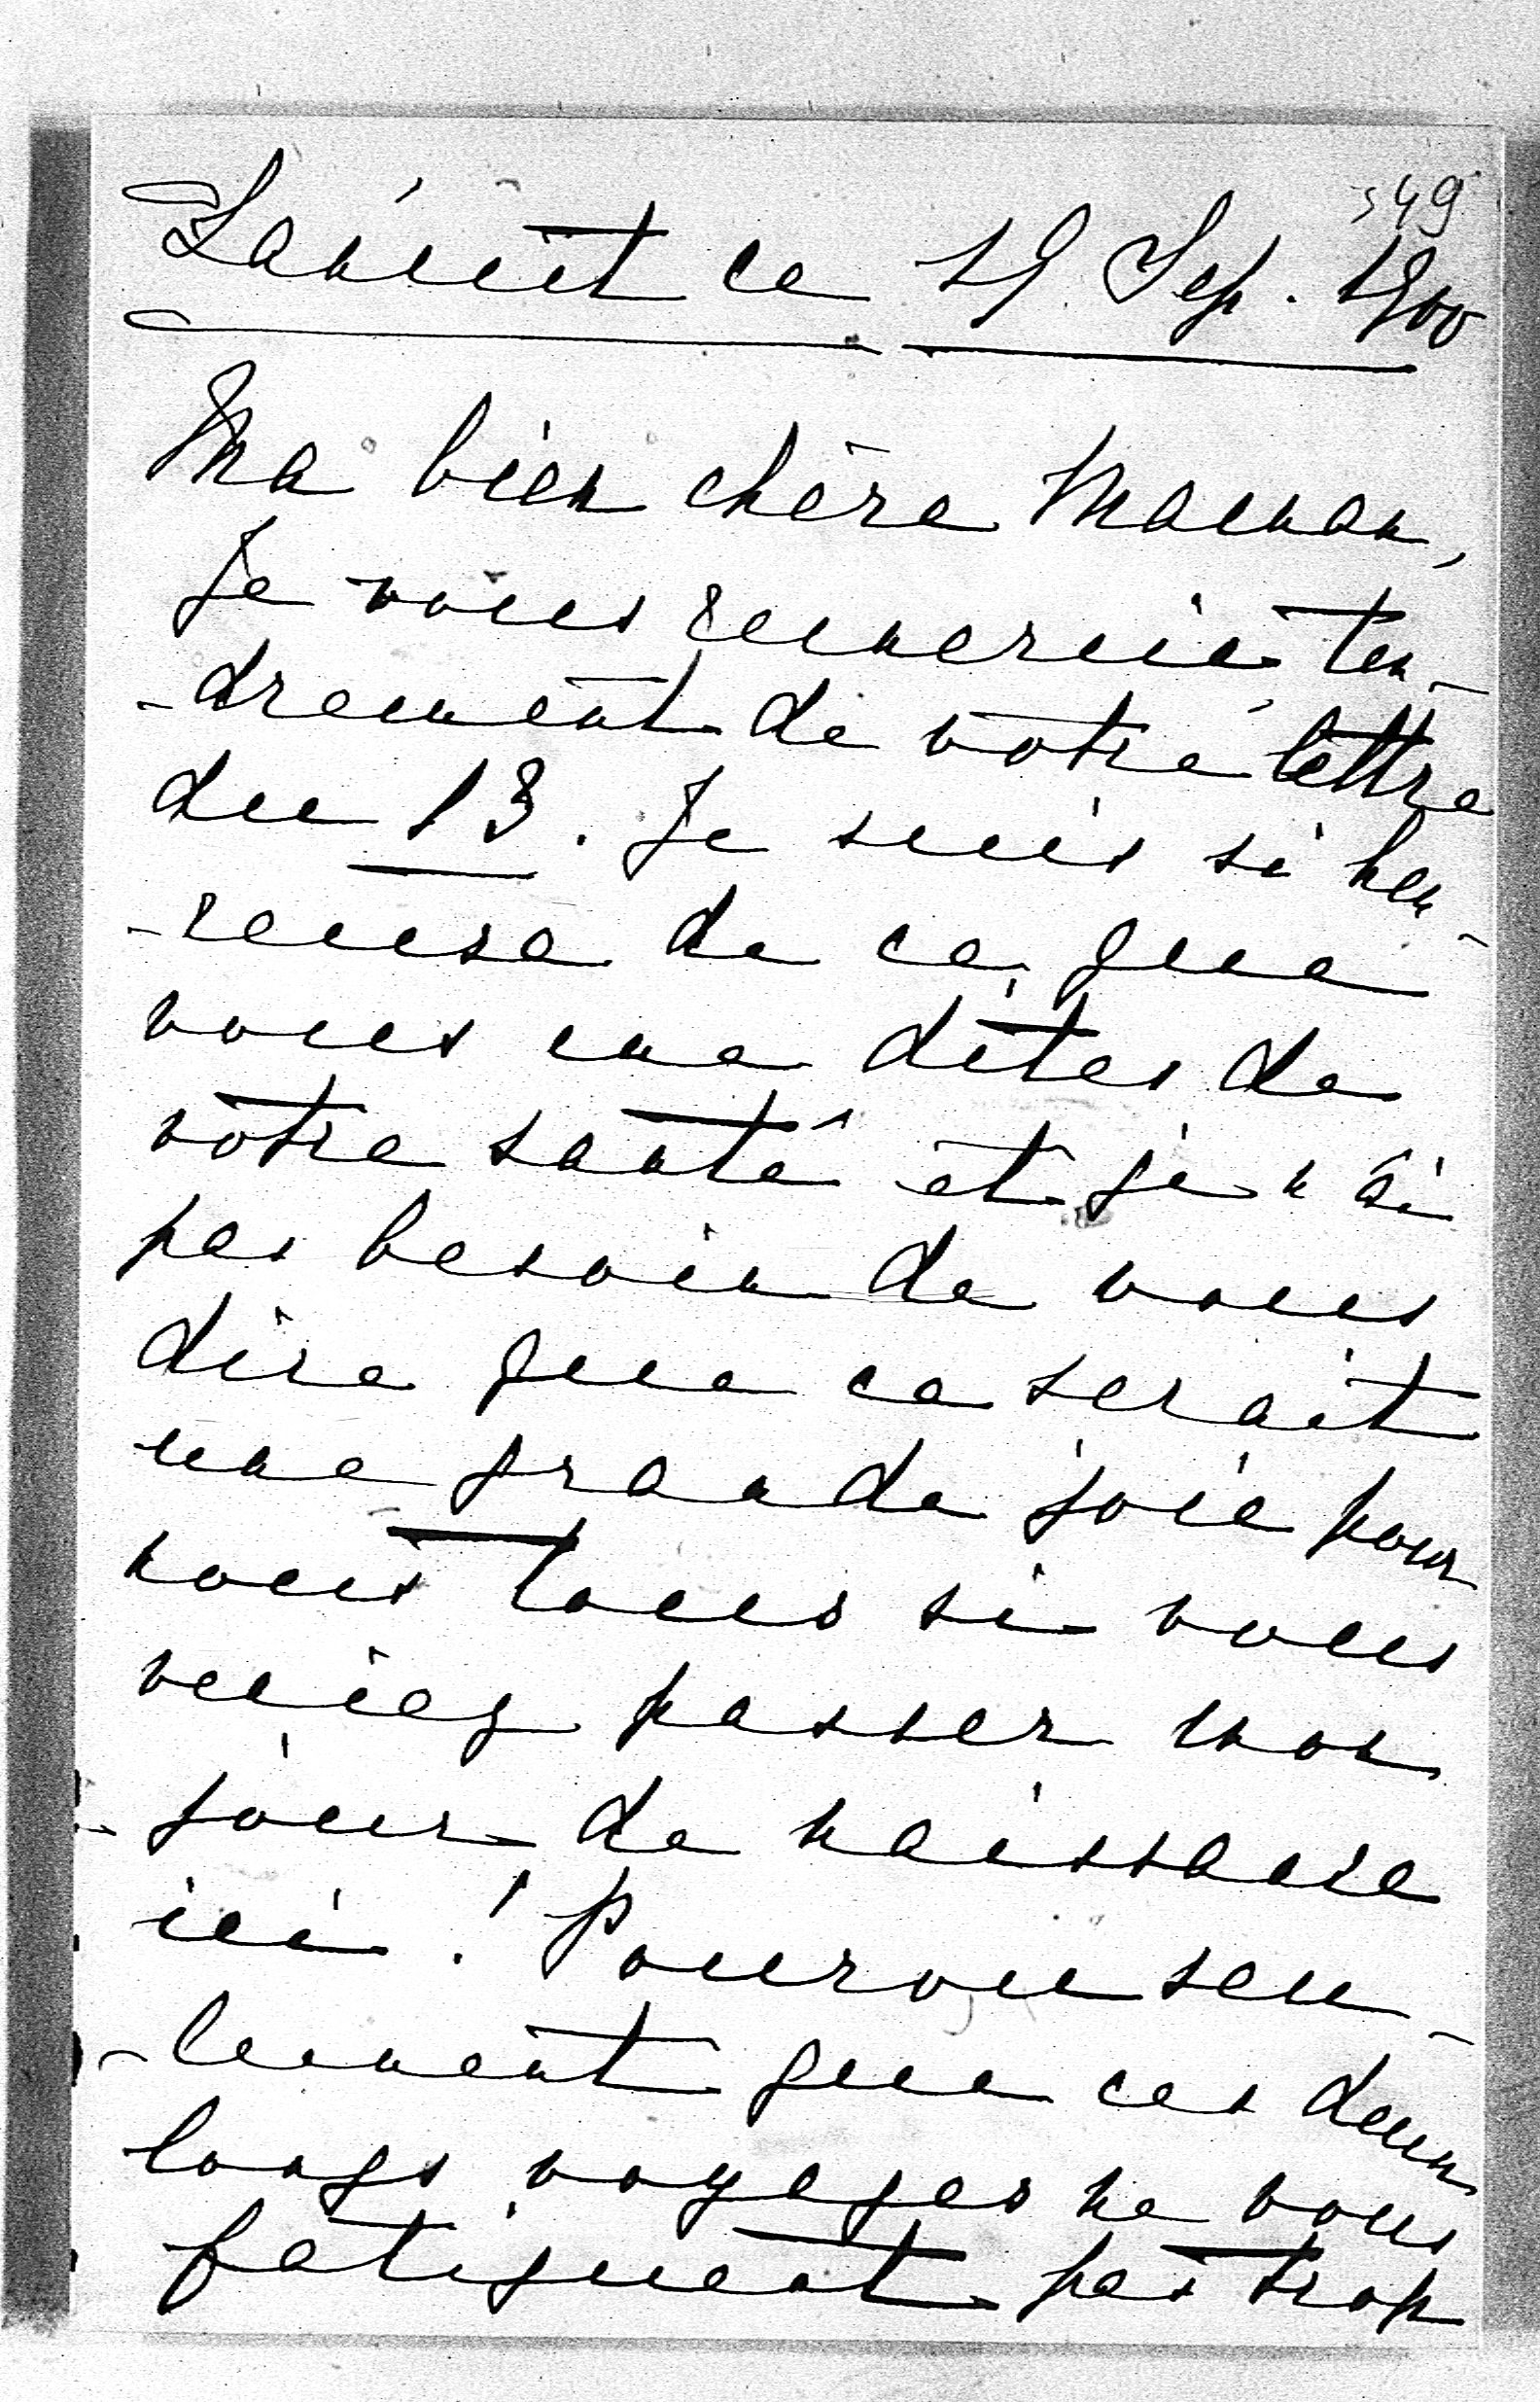 349
Lancut ce 19 Sep. 1900
Ma bien chère Maman,
Je vous remercie ten-
-drement de votre lettre
du 13. Je suis si heu-
-reuse de ce que
vous me dites de
votre santé et je n'ai
pas besoin de vous
dire que ce serait
une grande joie pour
nous tous si vous
veniez passer mon
jour de naissance
ici! Pourvu seu-
-lement que ces deux
longs voyages ne vous
fatiguent pas trop